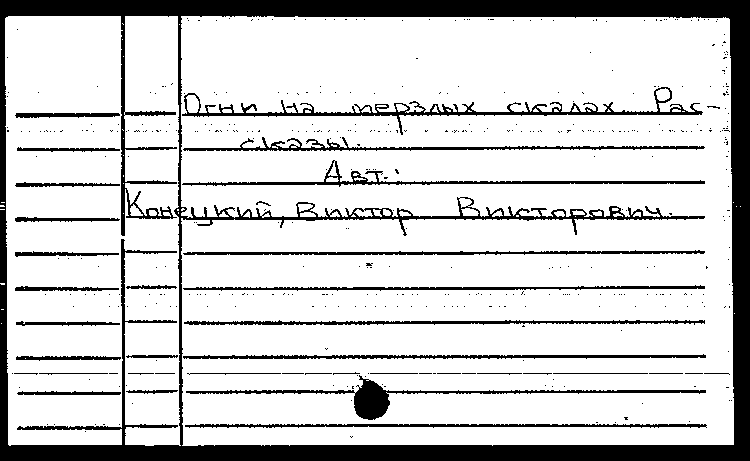 Огни на мерзлых скалах. Рас-
сказы.
Авт.:
Конецкий, Виктор Викторович.